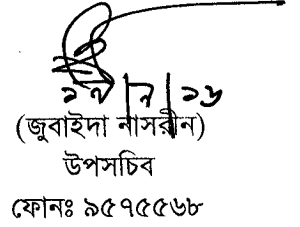 ১৭|৭|১৬
(জুবাইদা নাসরীন)
উপসচিব
ফোনঃ ৯৫৭৫৫৬৮